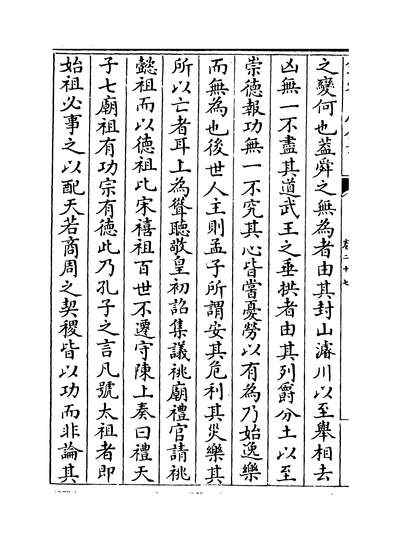 之變何也蓋舜之無為者由其封山濬川以至舉相去
凶無一不盡其道武王之垂拱者由其列爵分土以至
崇德報功無一不究其心皆當憂勞以有為乃始逸樂
而無為也後世人主則孟子所謂安其危利其災樂其
所以亡者耳上為聳聽敬皇初詔集議祧廟禮官請祧
懿祖而以德祖比宋僖祖百世不遷守陳上奏曰禮天
子七廟祖有功宗有德此乃孔子之言凡號太祖者即
始祖必事之以配天若商周之契稷皆以功而非論其
卷二十七